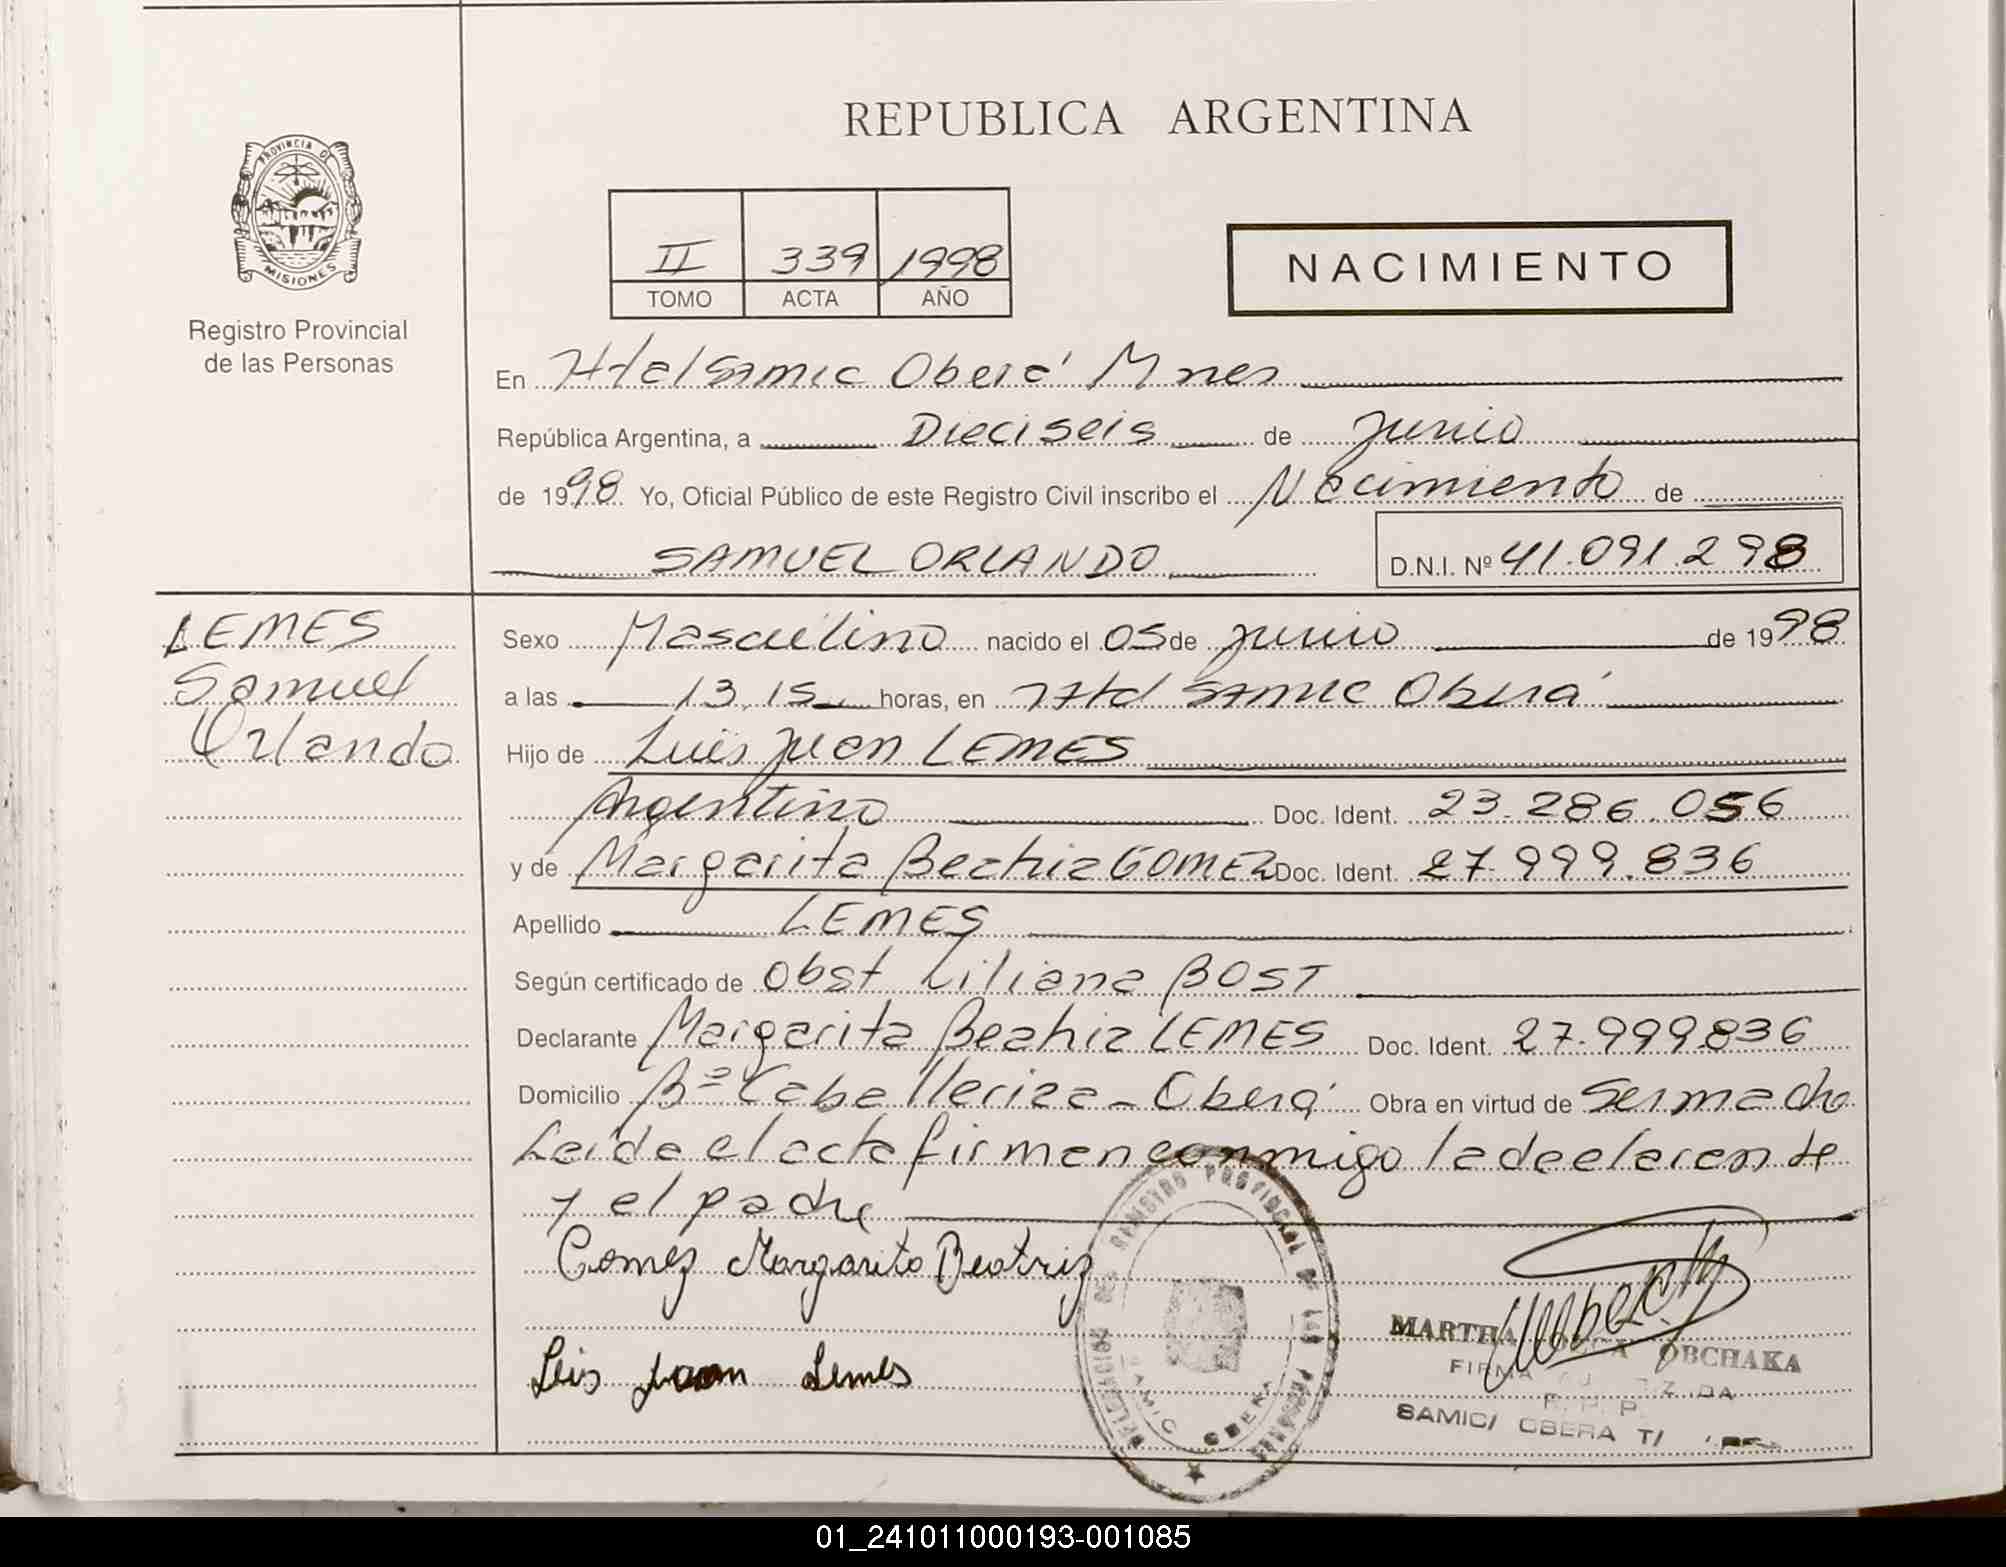 REPUBLICA ARGENTINA
PROVINCIA DE
MISIONES
Registro Provincial
de las Personas
II 339 1998
TOMO ACTA AÑO
NACIMIENTO
En Htal Samic Oberá Mnes
República Argentina, a Dieciseis de Junio
de 1998 Yo, Oficial Público de este Registro Civil inscribo el Nacimiento de
SAMUEL ORLANDO D.N.I. Nº 41.091.298
LEMES
Samuel
Orlando
Sexo Masculino nacido el 05 de Junio de 1998
a las 13,15 horas, en Htal SAMIC Oberá
Hijo de Luis Juan LEMES
Argentino Doc. Ident. 23.286.056
y de Margarita Beatriz GOMEZ Doc. Ident. 27.999.836
Apellido LEMES
Según certificado de Obst Liliana BOST
Declarante Margarita Beatriz LEMES Doc. Ident. 27.999.836
Domicilio Bº Caballeriza - Oberá Obra en virtud de ser madre
Leída el acta firman conmigo la declarante
y el padre
Gomez Margarita Beatriz
Leis Juan Lemes
REGISTRO PROVINCIAL DE LAS PERSONAS
DELEGACION
SAMIC OBERA
MARTHA OBCHAKA
FIRMA
R. P. P.
SAMIC/ OBERA
01_241011000193-001085